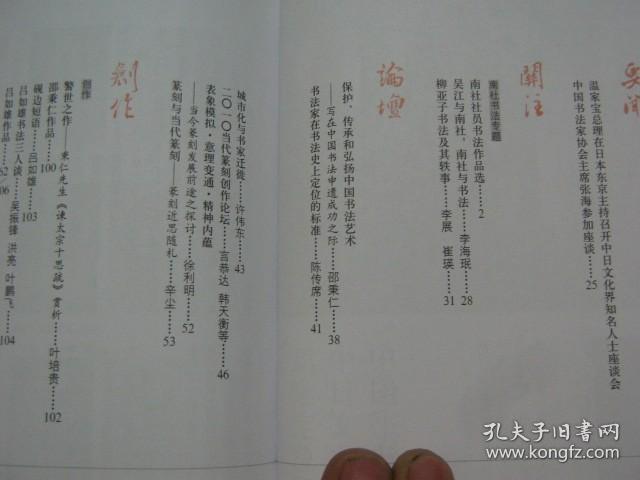 要闻
温家宝总理在日本东京主持召开中日文化界知名人士座谈会
中国书法家协会主席张海参加座谈……25
關注
南社书法专题
南社社员书法作品选……2
吴江与南社，南社与书法……李海珉……28
柳亚子书法及其轶事……李展 崔瑛……31
論壇
保护、传承和弘扬中国书法艺术
——写在中国书法申遗成功之际……邵秉仁……38
书法家在书法史上定位的标准……陈传席……41
城市化与书家迁徙……许伟东……43
二〇一〇当代篆刻创作论坛……言恭达 韩天衡等……46
表象模拟·意理变通·精神内蕴
——当今篆刻发展前途之探讨……徐利明……52
篆刻与当代篆刻——篆刻近思随札……辛尘……53
創作
警世之作——秉仁先生《谏太宗十思疏》赏析……叶培贵……102
邵秉仁作品……100
砚边短语……吕如雄……103
吕如雄书法三人谈……吴振锋 洪亮 叶鹏飞……104
吕如雄作品……06
62
孔夫子旧书网
www.kongfz.com